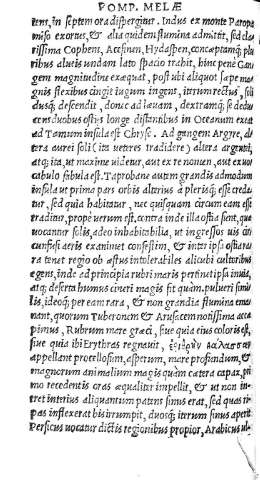 POMP. MELÆ
tens, in septem ora dispergitur. Indus ex monte Paropa
miso exortus, & alia quidem flumina admittit, sed cla-
rissima Cophen, Acesinen, Hydaspen, conceptamq; plu
ribus alueis undam lato spacio trahit, hinc pene Gan-
gem magnitudine exæquat, post ubi aliquot sæpe ma
gnis flexibus cingit iugum ingens, iterum rectus, soli-
dusq; descendit, donec ad læuam, dextramq; se dedu
cens duobus ostijs longe distantibus in Oceanum exeat
ad Tamum insula est Chryse. Ad gangem Argyre, al-
tera aurei soli (ita ueteres tradidere) altera argenti,
atq; ita, ut maxime uidetur, aut ex re nomen, aut ex uo
cabulo fabula est. Taprobane autem grandis admodum
insula ut prima pars orbis alterius à plerisq; esse credi
tur, sed quia habitatur, nec quisquam circum eam esse
traditur, prope uerum est, contra inde illa ostia sunt, quæ
uocantur solis, adeo inhabitabilia, ut ingressos uis cir
cunfusi aeris exanimet confestim, & inter ipsa ostia ora
ra tenet regio ob æstus intolerabiles alicubi cultoribus
egens, inde ad principia rubri maris pertinet ipsa inuia,
atq; deserta humus cineri magis sit quàm pulueri simi-
lis, ideoq; per eam rara, & non grandia flumina ema-
nant, quorum Tuberonem & Arusacem notissima acce
pimus, Rubrum mare græci, siue quia eius coloris est,
siue quia ibi Erythras regnauit,
appellant procellosum, asperum, mare profundum, &
magnorum animalium magis quàm cætera capax, pri
mo recedentis oras æqualiter impellit, & ut non in-
tret interius aliquantum patens sinus erat, sed quas ri
pas inflexerat bis irrumpit, duosq; iterum sinus aperit
Persicus uocatur dictis regionibus propior, Arabicus ul